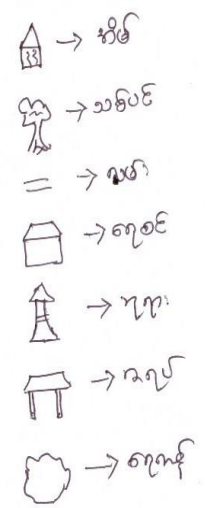 အိမ်
သစ်ပင်
လမ်း
ရေစင်
ဘုရား
ဇရပ်
ရေကန်